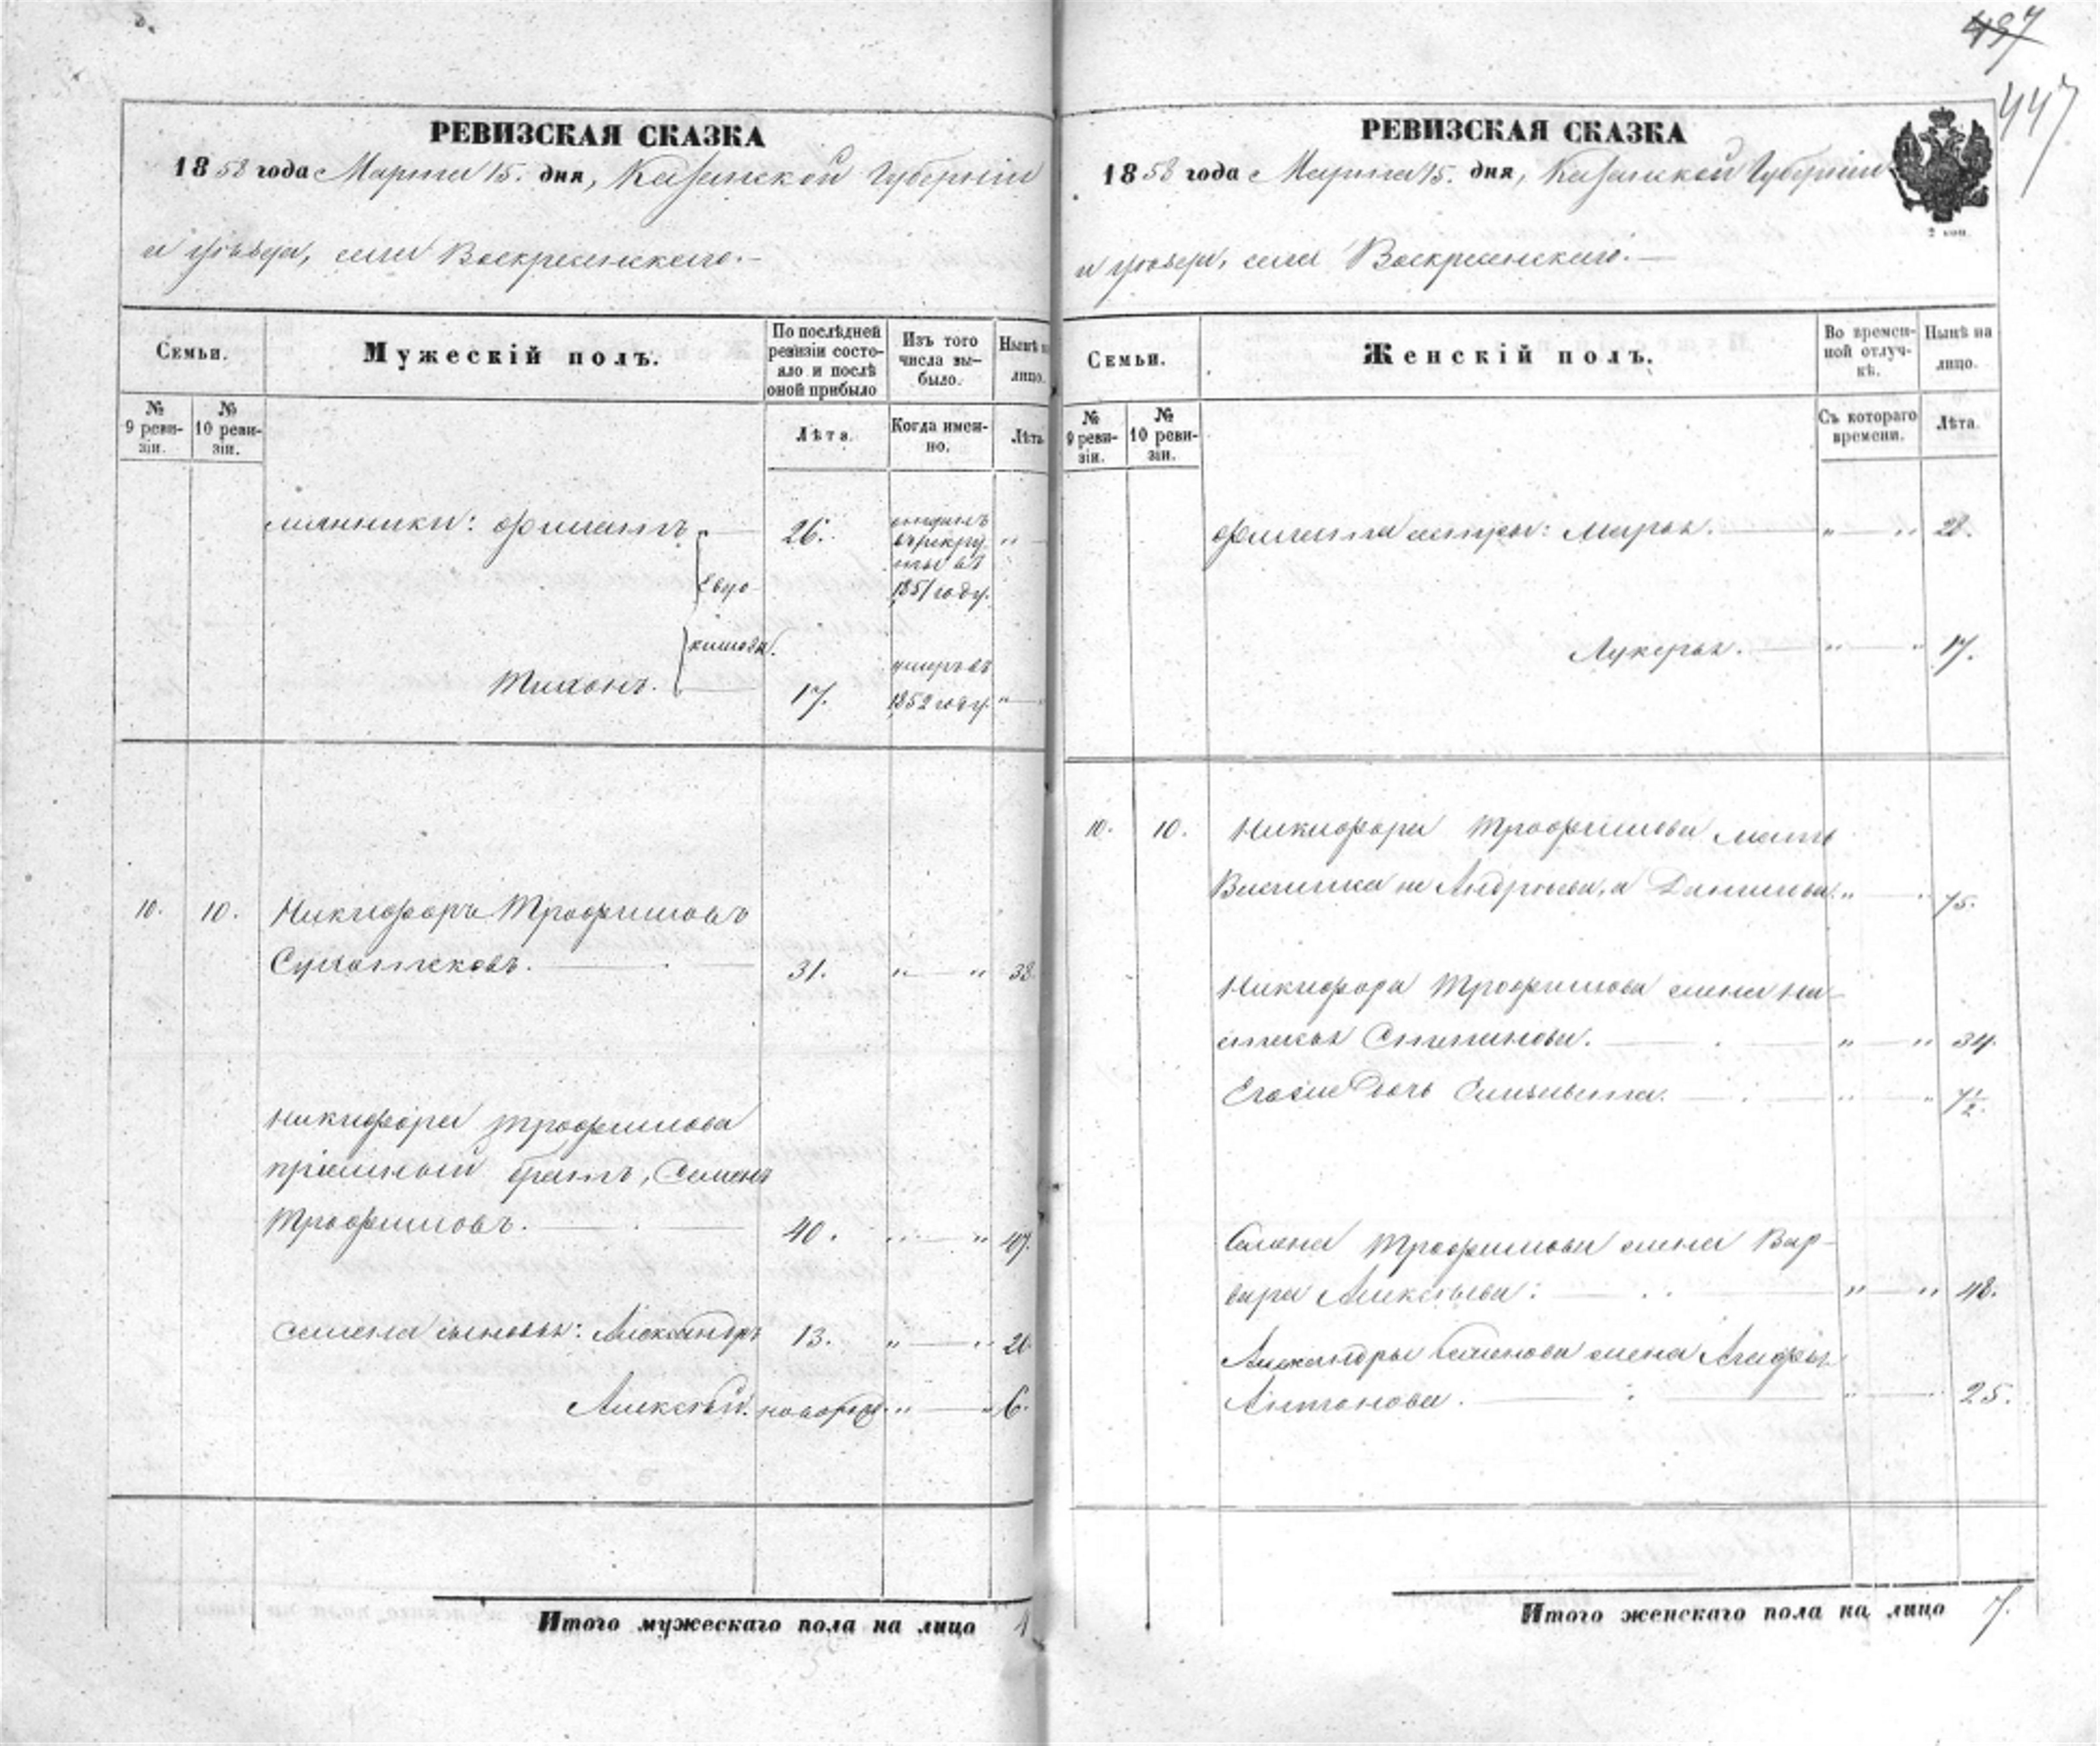 497
447
РЕВИЗСКАЯ СКАЗКА
1858 года Марта 15. дня, Казанской Губерніи
и уѣзда, села Воскресенскаго.
Семьи.
Мужескій полъ.
По послѣдней ревизіи состояло и послѣ оной прибыло
Изъ того числа выбыло.
Нынѣ на лицо.
№ 9 ревизіи.
№ 10 ревизіи.
Лѣта.
Когда именно.
Лѣта
Филатъ 26.
1851 году.
Тихонъ. 17. умеръ въ 1852 году.
10. 10. Никифоръ Трофимовъ
31. 38
Никифора Трофимова
пріемный братъ, Семенъ
Трофимовъ. 40. 47.
Семена сыновья: Александръ 13. 20
Алексѣй. новорож 6.
Итого мужескаго пола на лицо
РЕВИЗСКАЯ СКАЗКА
1858 года Марта 15. дня, Казанской Губерніи
2 коп.
и уѣзда, села Воскресенскаго.
Семьи.
Женскій полъ.
Во временной отлучкѣ.
Нынѣ на лицо.
№ 9 ревизіи.
№ 10 ревизіи.
Съ котораго времени.
Лѣта.
Филата сестры: Марья.
Лукерья. 17.
10. 10. Никифора Трофимова мать
Василиса не Андреева, а Данилова 75.
Никифора Трофимова жена На-
стасья Степанова. 34.
Его же дочь Елизавета. 7 1/2.
Семена Трофимова жена Вар-
вара Алексѣева: 48.
Александры Семенова жена Агафья
Антонова. 25.
Итого женскаго пола на лицо 7.